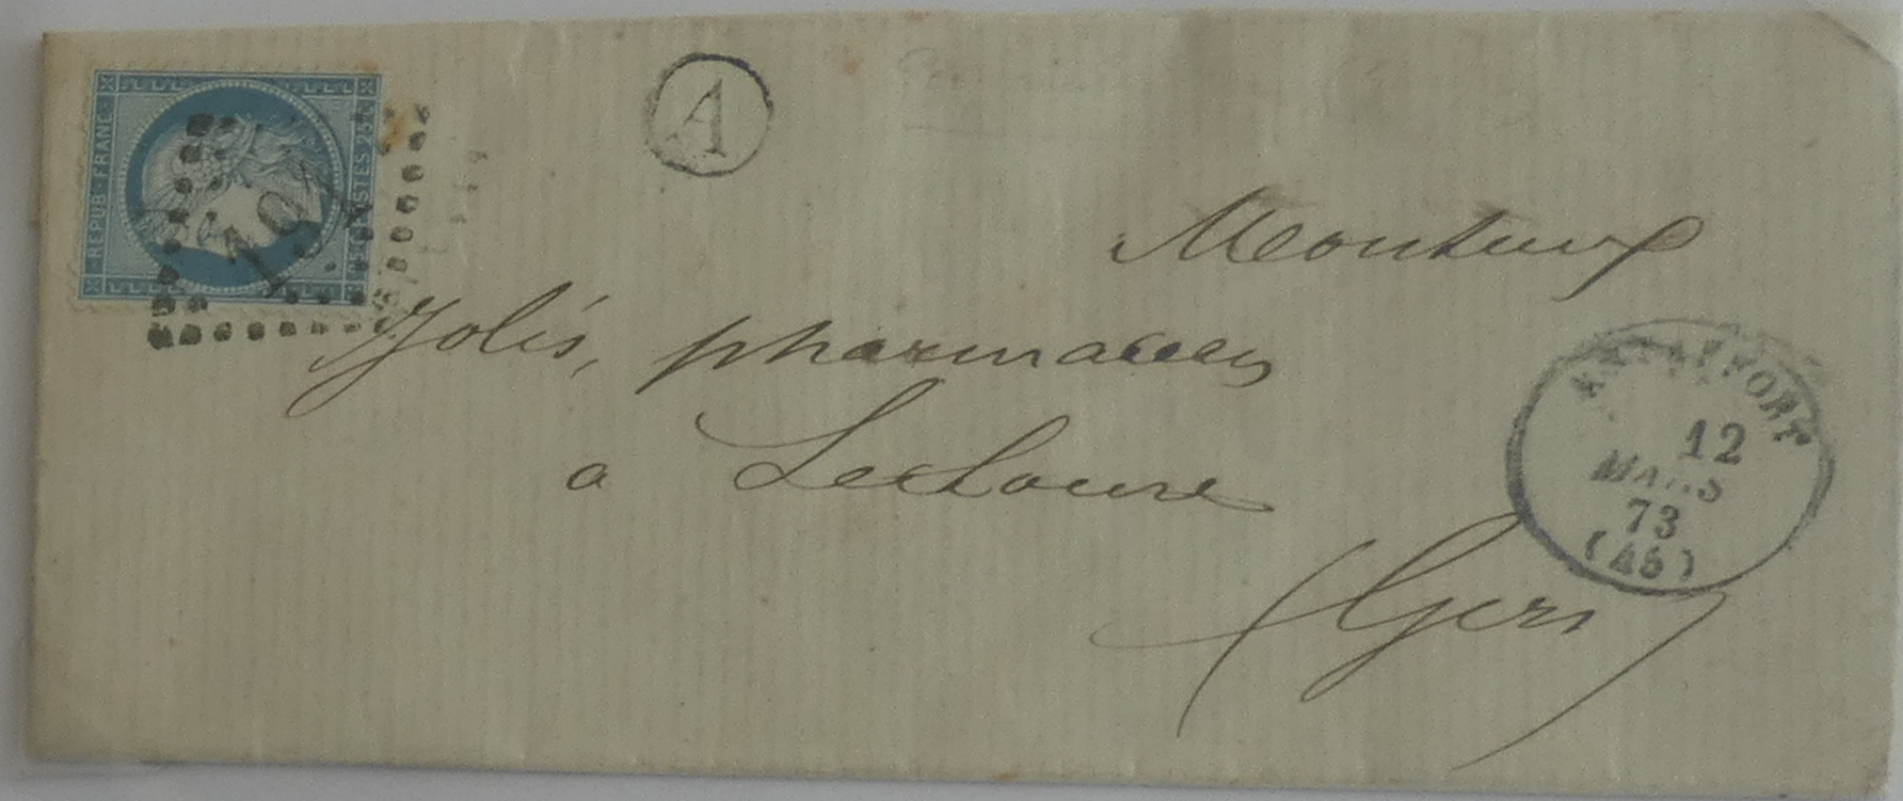 REPUB·FRANC·
25c POSTES 25c
A
Monsieur
Jolis, pharmacien
a Lectoure
(Gers)
ASTAFFORT
12
MARS
73
(45)